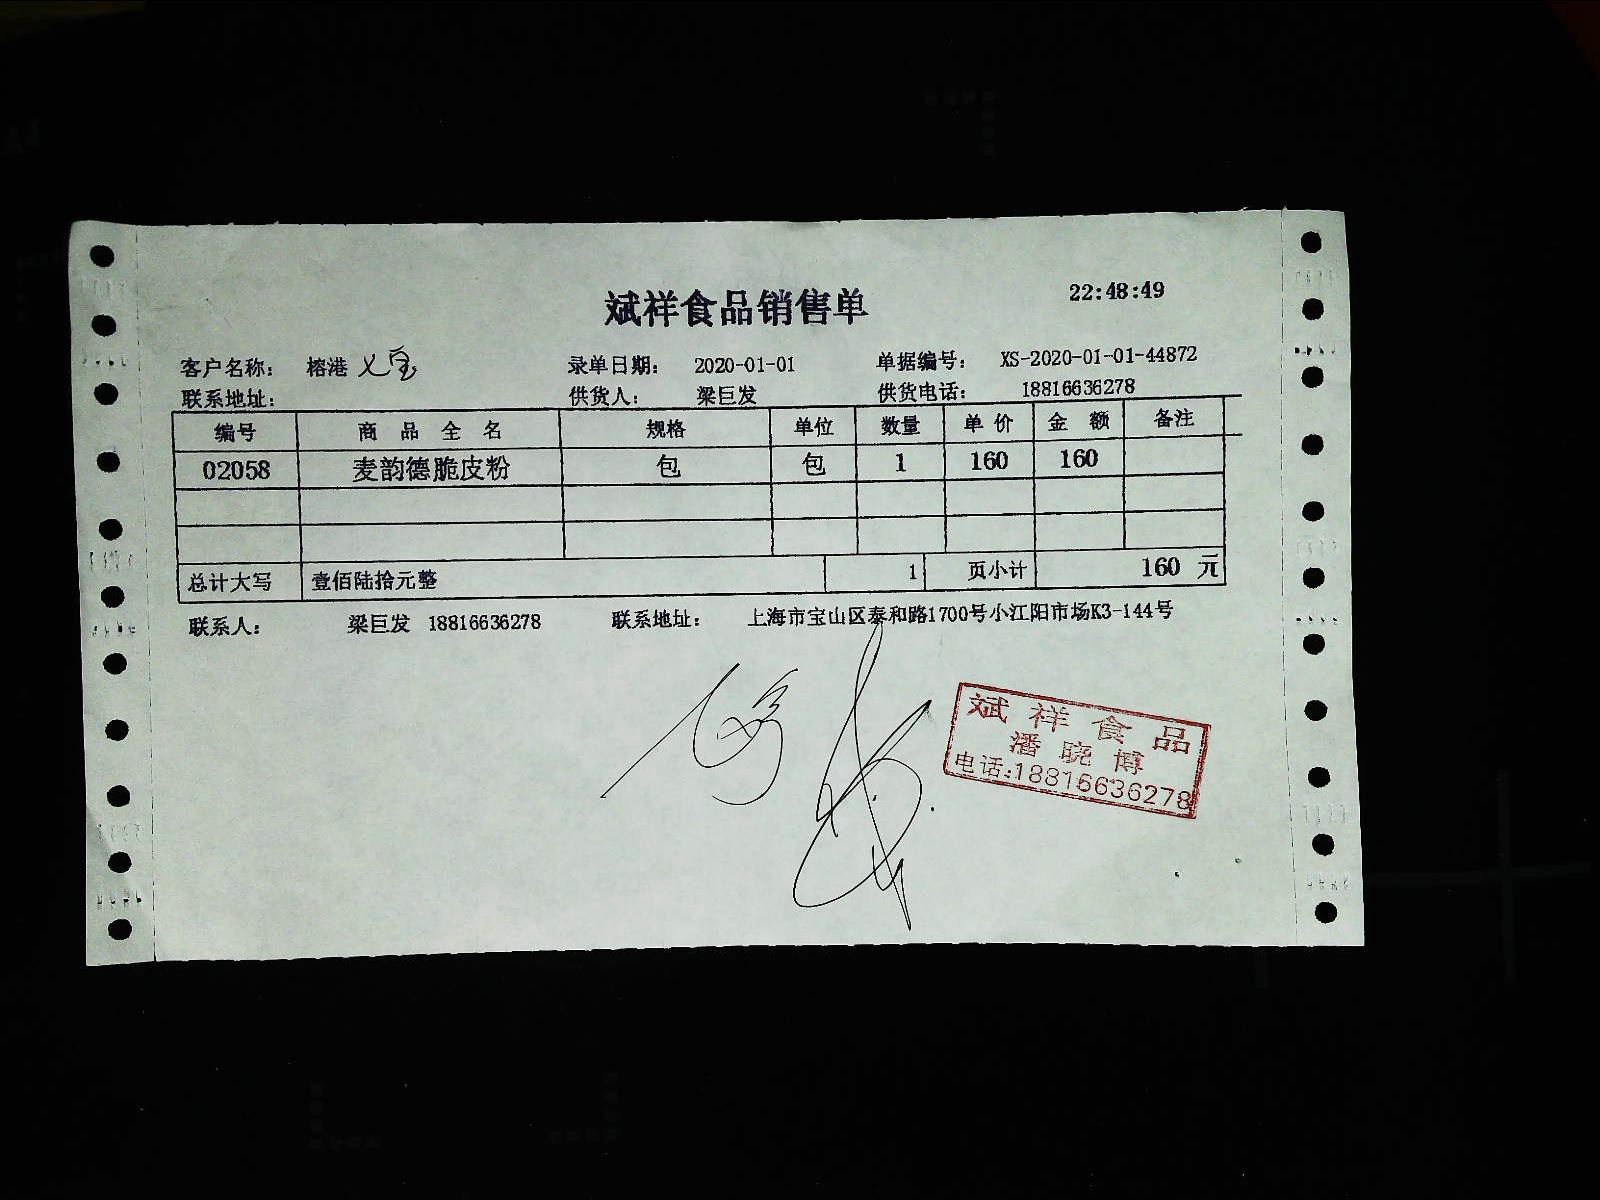 斌祥食品销售单 22:48:49
客户名称： 榕港 录单日期： 2020-01-01 单据编号： XS-2020-01-01-44872
联系地址： 供货人： 梁巨发 供货电话： 18816636278
编号 商品全名 规格 单位 数量 单价 金额 备注
02058 麦韵德脆皮粉 包 包 1 160 160
总计大写 壹佰陆拾元整 1 页小计 160 元
联系人： 梁巨发 18816636278 联系地址： 上海市宝山区泰和路1700号小江阳市场K3-144号
斌祥食品
潘晓博
电话:18816636278